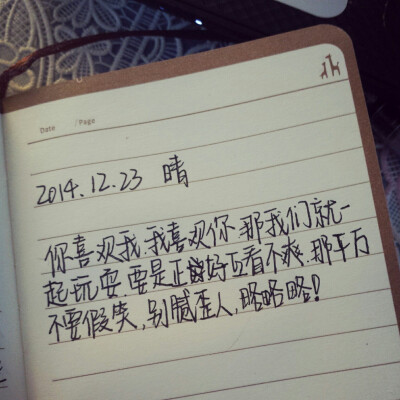 Date /Page
2014.12.23 晴
你喜欢我,我喜欢你,那我们就一
起玩耍.要是正好互看不爽.那千万
不要假笑,别腻歪人,略略略!